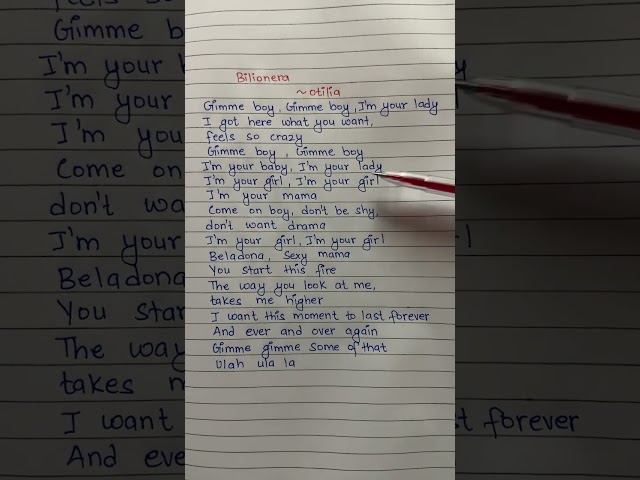 Bilionera
~ Otilia
Gimme boy, Gimme boy, I'm your lady
I got here what you want,
feels so crazy
Gimme boy, Gimme boy
I'm your baby, I'm your lady
I'm your girl, I'm your girl
I'm your mama
Come on boy, don't be shy,
don't want drama
I'm your girl, I'm your girl
Beladona, Sexy mama
You start this fire
The way you look at me,
takes me higher
I want this moment to last forever
And ever and over again
Gimme gimme some of that
Ulah ula la